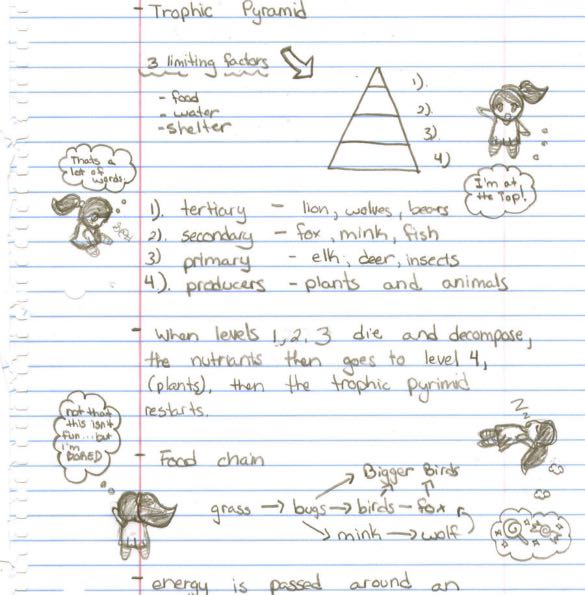 - Trophic Pyramid
3 limiting factors
- food
- water
- shelter
1).
2).
3)
4)
Thats a
lot of
words.
I'm at
the Top!
1). tertiary - lion, wolves, bears
2). secondary - fox, mink, fish
3) primary - elk, deer, insects
4). producers - plants and animals
- When levels 1, 2, 3 die and decompose,
the nutriants then goes to level 4,
(plants), then the trophic pyrimid
restarts.
not that
this isn't
fun...but
i'm
BORED
- Food chain
Bigger Birds
grass → bugs → birds - fox
mink → wolf
- energy is passed around an